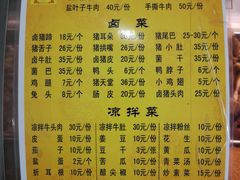 盐叶子牛肉 40元/份 手撕牛肉 50元/份
卤菜
卤猪蹄 18元/个 猪耳朵 30元/份 猪尾巴 25-30元/个
猪舌子 30元/份 猪拱嘴 30元/份 猪小肚 35元/份
卤牛肚 35元/份 卤猪肚 35元/份 卤肥肠 35元/份
菌巴 35元/份 鸭头 6元/个 鸭脖子 6元/份
鸡翅 6元/个 鸡爪 35元/份 小鸡翅 35元/份
兔头 10元/个 腐皮 20元/份 卤猪头肉 25元/份
凉拌菜
凉拌牛头肉 30元/份 凉拌牛肚 30元/份 凉拌粉丝 10元/份
皮蛋 10元/份 姜豆 10元/份 花生 10元/份
茄子 10元/份 豆干 10元/份 黄瓜 10元/份
盐蛋 2元/个 苦瓜 10元/份 青菜汤 10元/份
折耳根 10元/份 酸尖椒 10元/份 炒素菜 15元/份